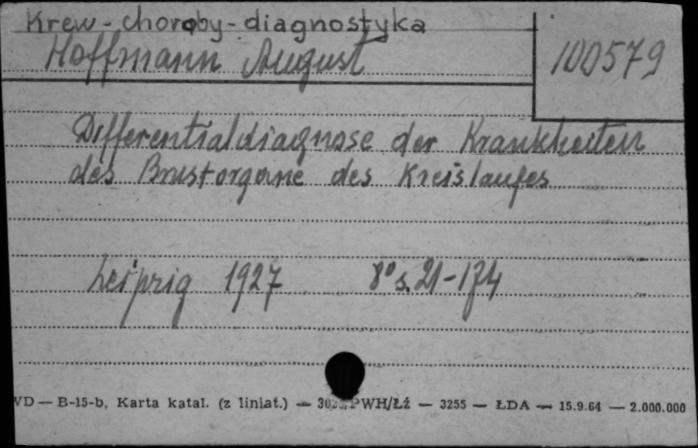 Krew - choroby - diagnostyka
Hoffmann August
100579
Differentialdiagnose der Krankheiten
des Brustorgane des Kreislaufes
Leipzig 1927 8° s. 21-174
WD — B-15-b, Karta katal. (z liniat.) — PWH/Łź — 3255 — ŁDA — 15.9.64 — 2.000.000